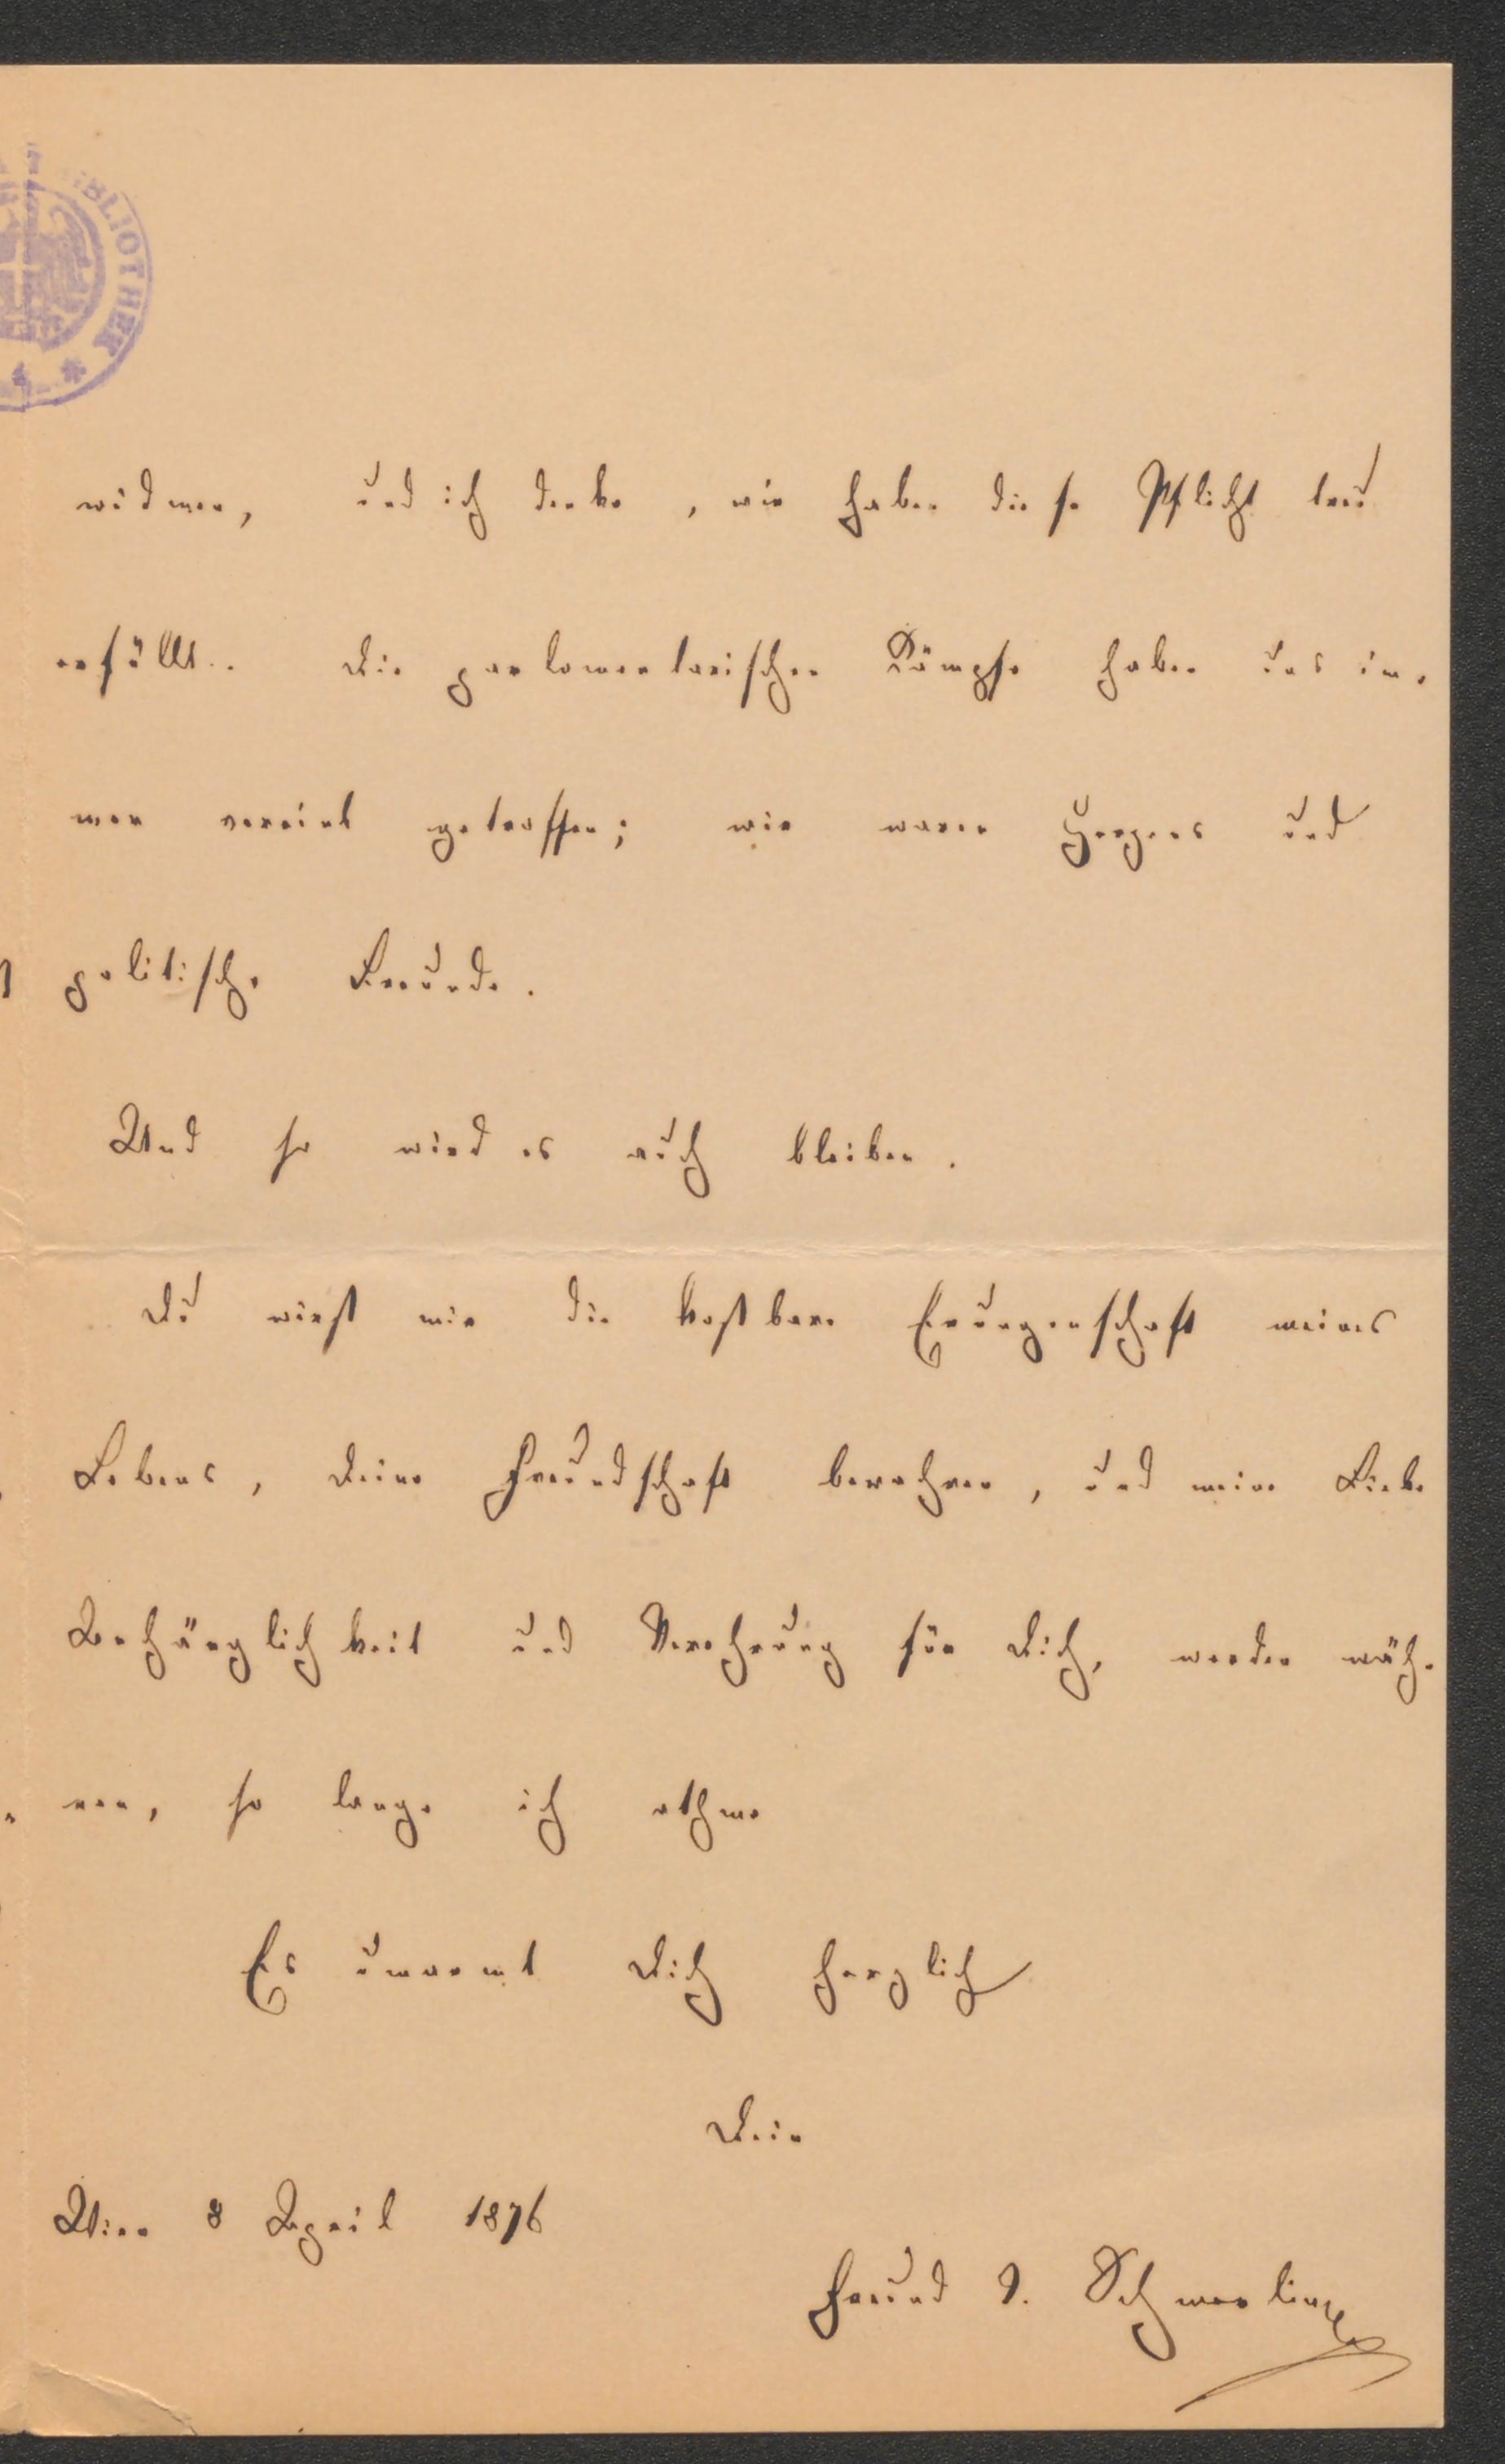 BLIOTHEK
widmen, und ich denke, wir haben diese Pflicht treu
erfüllt. Die parlamentarischen Kämpfe haben uns im-
mer vereint getroffen; wir waren Herzens und
politische Freunde.
Und so wird es auch bleiben.
Du wirst mir die kostbare Erungenschaft meines
Lebens, Deine Freundschaft bewahren, und meine Liebe
Anhänglichkeit und Verehrung für Dich, werden wäh-
ren, so lange ich athme
Es umarmt Dich herzlich
Dein
Wien 8 April 1876
Freund v. Schmerling